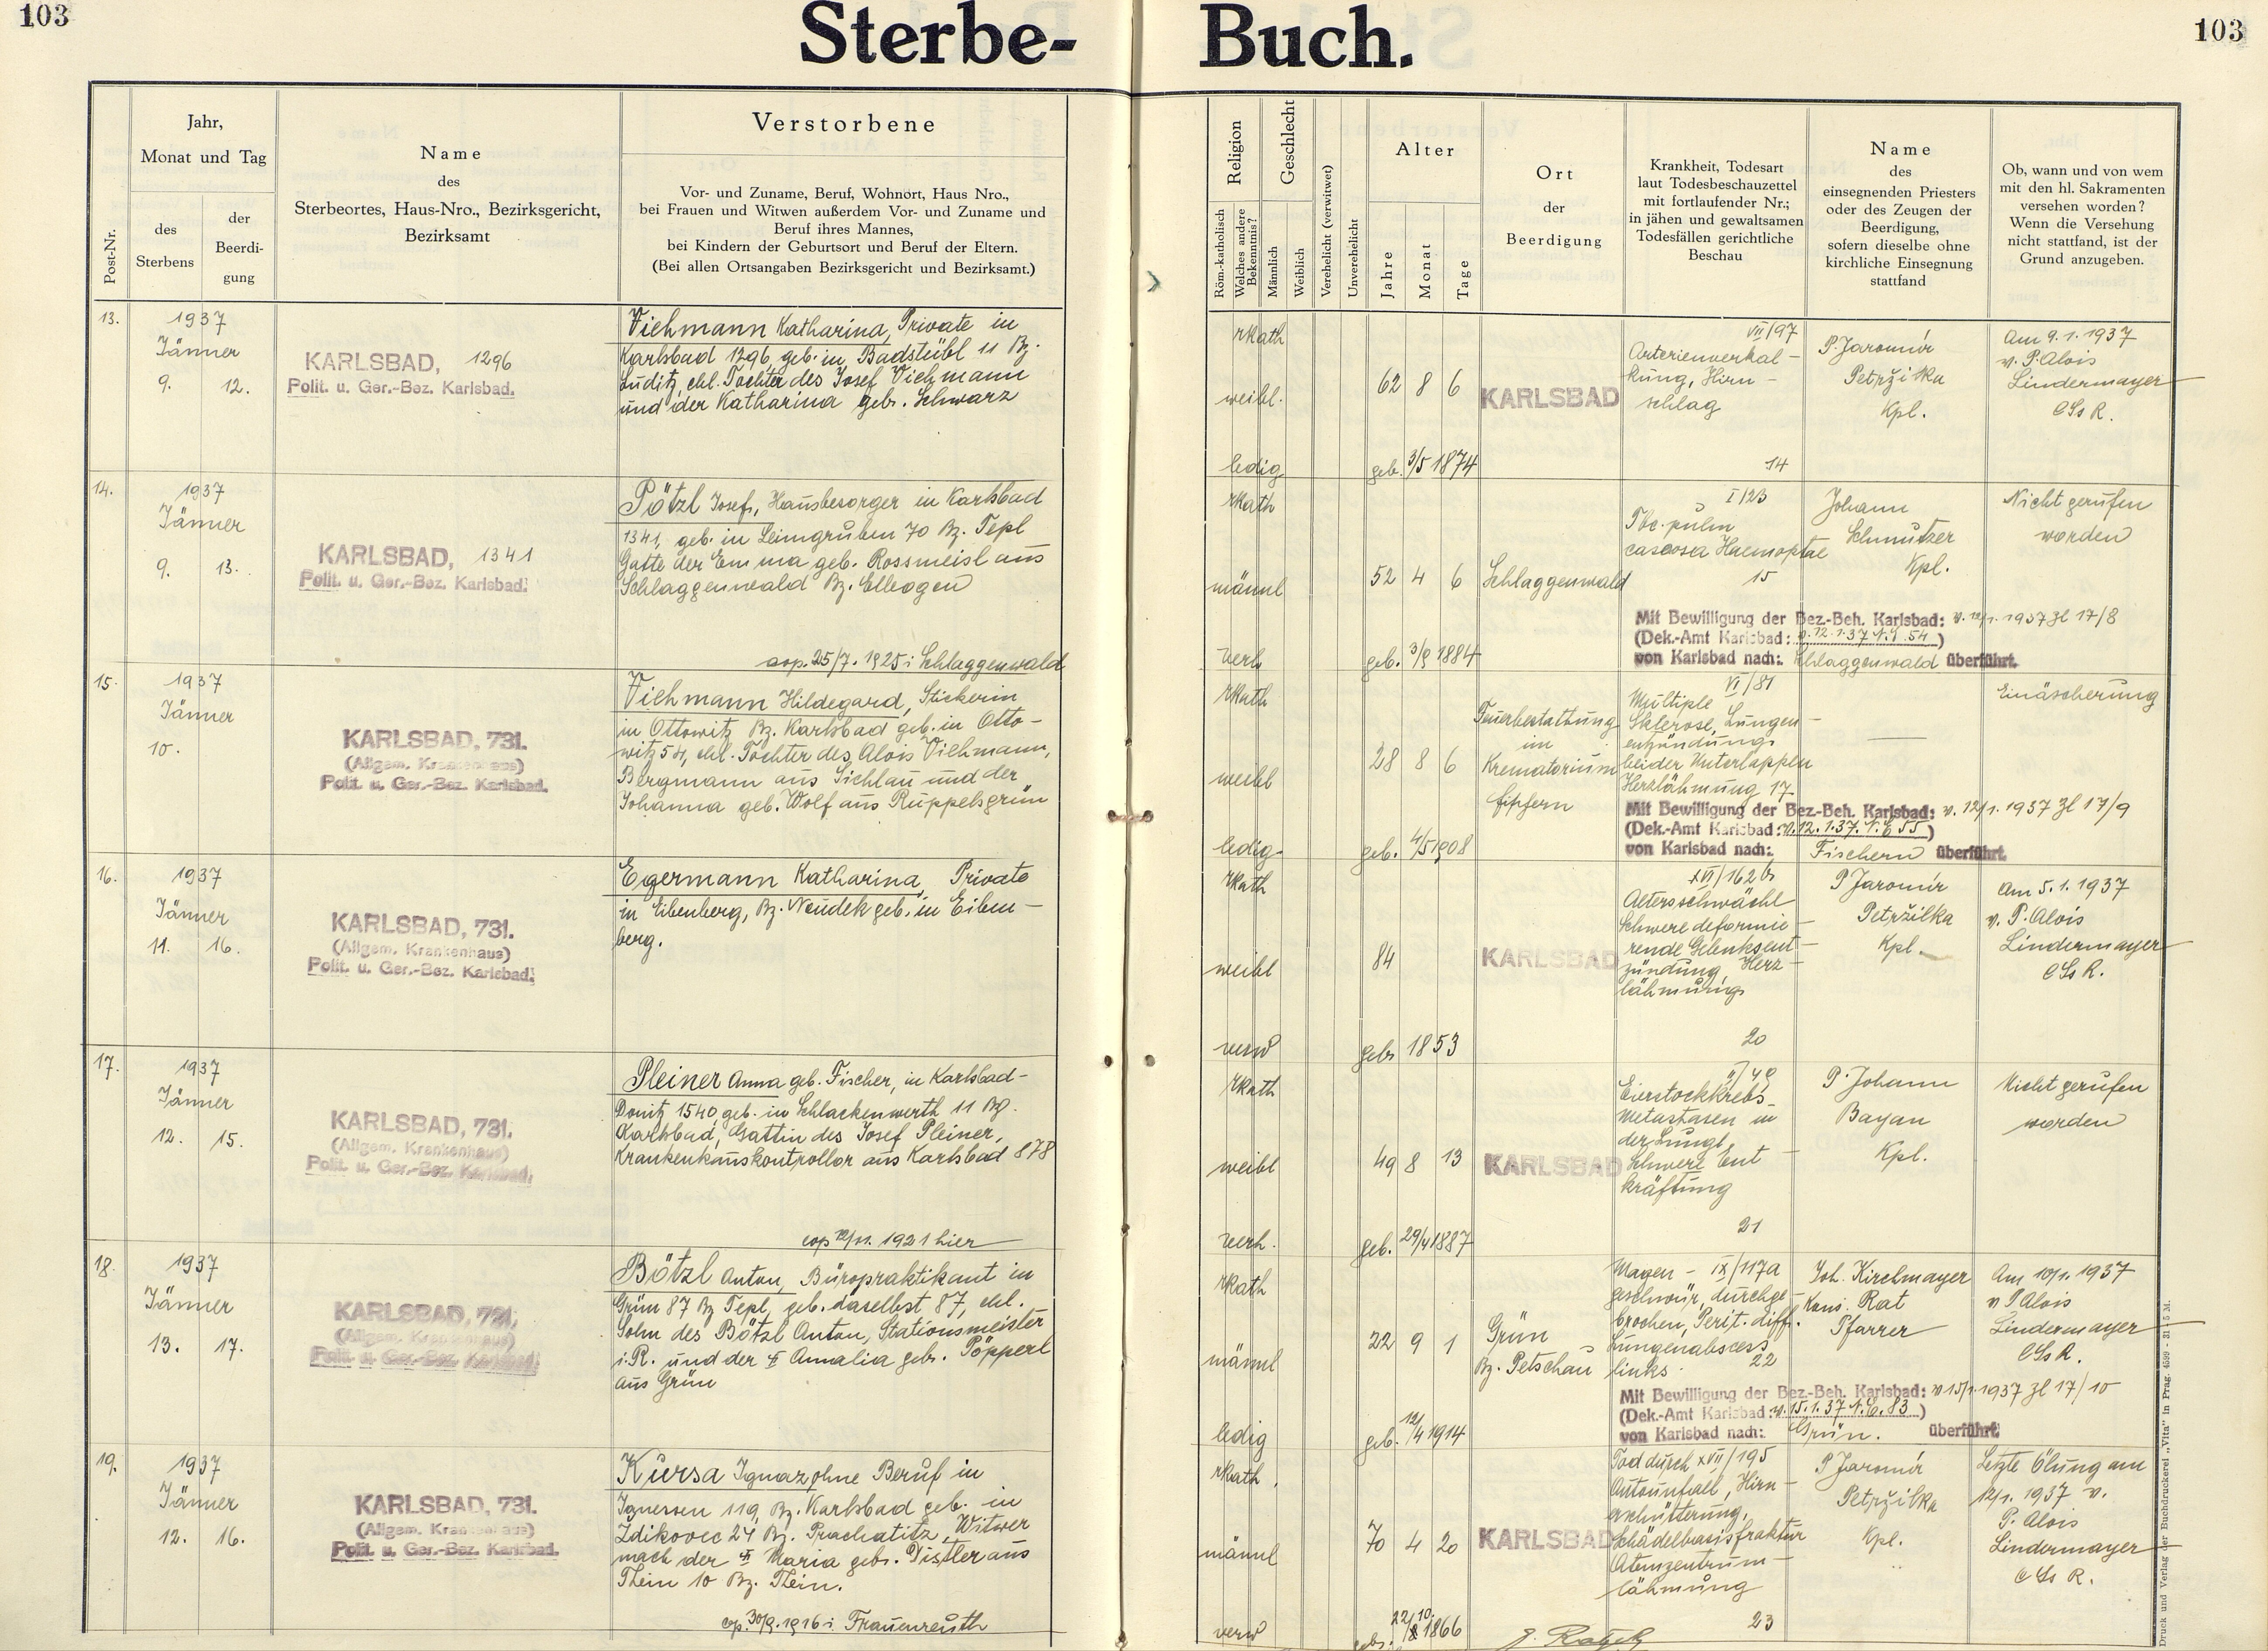 103
Sterbe-
Buch.
103
Post-Nr.
Jahr,
Monat und Tag
des
Sterbens
der
Beerdi-
gung
Name
des
Sterbeortes, Haus-Nro., Bezirksgericht,
Bezirksamt
Verstorbene
Vor- und Zuname, Beruf, Wohnort, Haus Nro.,
bei Frauen und Witwen außerdem Vor- und Zuname und
Beruf ihres Mannes,
bei Kindern der Geburtsort und Beruf der Eltern.
(Bei allen Ortsangaben Bezirksgericht und Bezirksamt.)
Religion
Röm.-katholisch
Welches andere
Bekenntnis?
Geschlecht
Männlich
Weiblich
Verehelicht (verwitwet)
Unverehelicht
Alter
Jahre
Monat
Tage
Ort
der
Beerdigung
Krankheit, Todesart
laut Todesbeschauzettel
mit fortlaufender Nr.;
in jähen und gewaltsamen
Todesfällen gerichtliche
Beschau
Name
des
einsegnenden Priesters
oder des Zeugen der
Beerdigung,
sofern dieselbe ohne
kirchliche Einsegnung
stattfand
Ob, wann und von wem
mit den hl. Sakramenten
versehen worden?
Wenn die Versehung
nicht stattfand, ist der
Grund anzugeben.
13.
1937
Jänner
9. 12.
KARLSBAD, 1296
Polit. u. Ger.-Bez. Karlsbad.
Viehmann Katharina, Private in
Karlsbad 1296, geb. in Badstübl 11 Bz.
Luditz, ehl. Tochter des Josef Viehmann
und der Katharina geb. Schwarz
rkath
weibl.
ledig
62 8 6
geb. 3/5 1874
KARLSBAD
VII/97
Arterienverkal-
kung, Hirn-
schlag
14
P. Jaromír
Petržilka
Kpl.
Am 9.1.1937
v. P. Alois
Lindermayer
CSsR.
14.
1937
Jänner
9. 13.
KARLSBAD, 1341
Polit. u. Ger.-Bez. Karlsbad.
Pötzl Josef, Hausbesorger in Karlsbad
1341, geb. in Leimgruben 70 Bz. Tepl
Gatte der Emma geb. Rossmeisl aus
Schlaggenwald Bz. Elbogen
cop. 25/7. 1925 i Schlaggenwald
rkath
männl
verh
52 4 6
geb. 3/9 1884
Schlaggenwald
I/23
Tbc. pulm
caseosa Haemoptoe
15
Johann
Schmutzer
Kpl.
Nicht gerufen
worden
Mit Bewilligung der Bez.-Beh. Karlsbad: v. 12/1. 1937 Zl 17/8
(Dek.-Amt Karlsbad: v. 12.1.37 N.E. 54)
von Karlsbad nach: Schlaggenwald überführt.
15.
1937
Jänner
10.
KARLSBAD, 731.
(Allgem. Krankenhaus)
Polit. u. Ger.-Bez. Karlsbad.
Viehmann Hildegard, Stickerin
in Ottowitz Bz. Karlsbad geb. in Otto-
witz 54, ehl. Tochter des Alois Viehmann,
Bergmann aus Sichlau und der
Johanna geb. Wolf aus Ruppelsgrün
rkath
weibl
ledig
28 8 6
geb. 4/5 1908
Feuerbestattung
im
Krematorium
VI/81
Multiple
Sklerose, Lungen-
entzündung
beider Unterlappen
Herzlähmung 17
Einäscherung
Mit Bewilligung der Bez.-Beh. Karlsbad: v. 12/1. 1937 Zl 17/9
(Dek.-Amt Karlsbad: v. 12.1.37. N.E 55)
von Karlsbad nach: Fischern überführt.
16.
1937
Jänner
11. 16.
KARLSBAD, 731.
(Allgem. Krankenhaus)
Polit. u. Ger.-Bez. Karlsbad.
Egermann Katharina, Private
in Eibenberg, Bz. Neudek geb. in Eiben-
berg.
rkath
weibl
verw
84
geb 1853
KARLSBAD
XVI/162b
Altersschwäche
Schwere deformie-
rende Gelenksent-
zündung, Herz-
lähmung
20
P Jaromír
Petržilka
Kpl.
Am 5.1.1937
v. P. Alois
Lindermayer
CSsR.
17.
1937
Jänner
12. 15.
KARLSBAD, 731.
(Allgem. Krankenhaus)
Polit. u. Ger.-Bez. Karlsbad.
Pleiner Anna geb. Fischer, in Karlsbad-
Donitz 1540 geb. in Schlackenwerth 11 Bz.
Karlsbad, Gattin des Josef Pleiner,
Krankenhauskontrollor aus Karlsbad 878
cop 12/11. 1921 hier
rkath
weibl
verh.
49 8 13
geb. 29/4 1887
KARLSBAD
II/49
Eierstockkrebs-
Metastasen in
der Lunge,
Schwere Ent-
kräftung
21
P. Johann
Bayan
Kpl.
Nicht gerufen
worden
18.
1937
Jänner
13. 17.
KARLSBAD, 731.
(Allgem. Krankenhaus)
Polit. u. Ger.-Bez. Karlsbad.
Bötzl Anton, Büropraktikant in
Grün 87 Bz Tepl, geb. daselbst 87, ehl.
Sohn des Bötzl Anton, Stationsmeister
i. R. und der Amalia geb. Pöpperl
aus Grün
rkath
männl
ledig
22 9 1
geb. 12/4 1914
Grün
Bz. Petschau
Magen- IX/117a
geschwür, durchge-
brochen, Perit. diff.
Lungenabscess
links. 22
Joh. Kirchmayer
Kons. Rat
Pfarrer
Am 10/1. 1937
v P Alois
Lindermayer
CSsR.
Mit Bewilligung der Bez.-Beh. Karlsbad: v 15/1. 1937 Zl 17/10
(Dek.-Amt Karlsbad: v. 15.1.37 N.E. 83)
von Karlsbad nach: Grün. überführt.
19.
1937
Jänner
12. 16.
KARLSBAD, 731.
(Allgem. Krankenhaus)
Polit. u. Ger.-Bez. Karlsbad.
Kursa Ignaz, ohne Beruf in
119, Bz. Karlsbad geb. in
Zdikovec 24 Bz. Prachatitz, Witwer
nach der Maria geb. Distler aus
Thein 10 Bz. Thein.
cop. 30/9. 1916 i. Frauenreuth
rkath.
männl
verw
70 4 20
geb. 1866
KARLSBAD
Tod durch XVII/195
Autounfall, Hirn-
erschütterung,
Schädelbasisfraktur
Atemzentrum-
lähmung
23
P Jaromír
Petržilka
Kpl.
Letzte Ölung am
12/1. 1937 v.
P. Alois
Lindermayer
CSsR.
Druck und Verlag der Buchdruckerei „Vita" in Prag. 4599 - 31. 5 M.